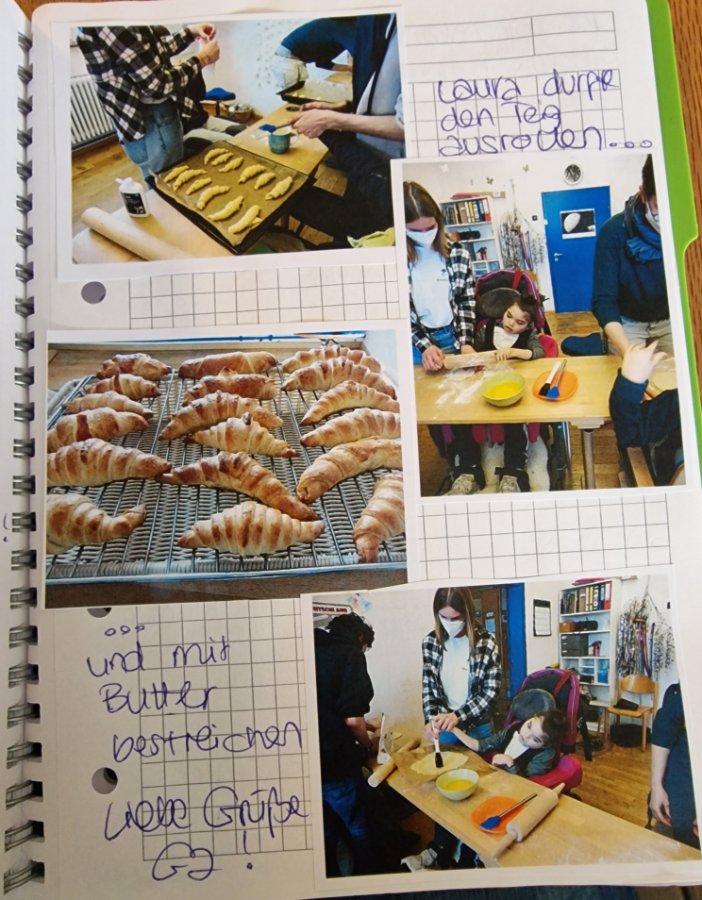 Laura durfte
den Teg
ausrollen...
...
und mit
Butter
bestreichen
Liebe Grüße
!